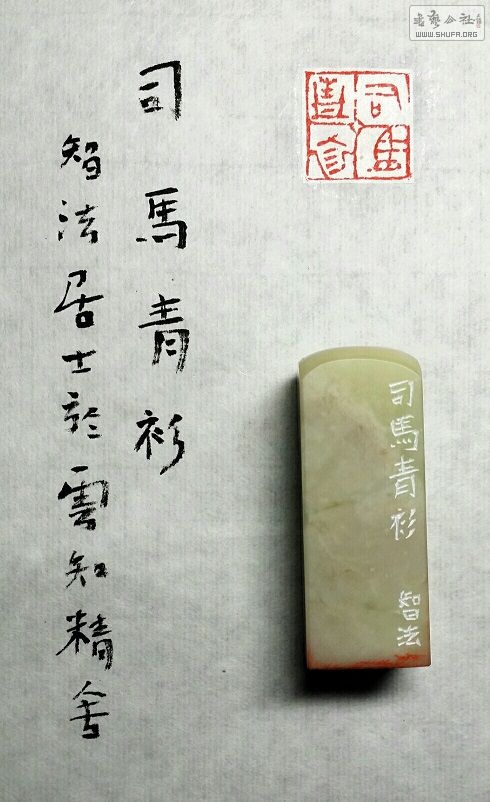 司馬青衫
智法居士於雲知精舍
司馬青衫
司馬青衫
智法
書藝公社
WWW.SHUFA.ORG